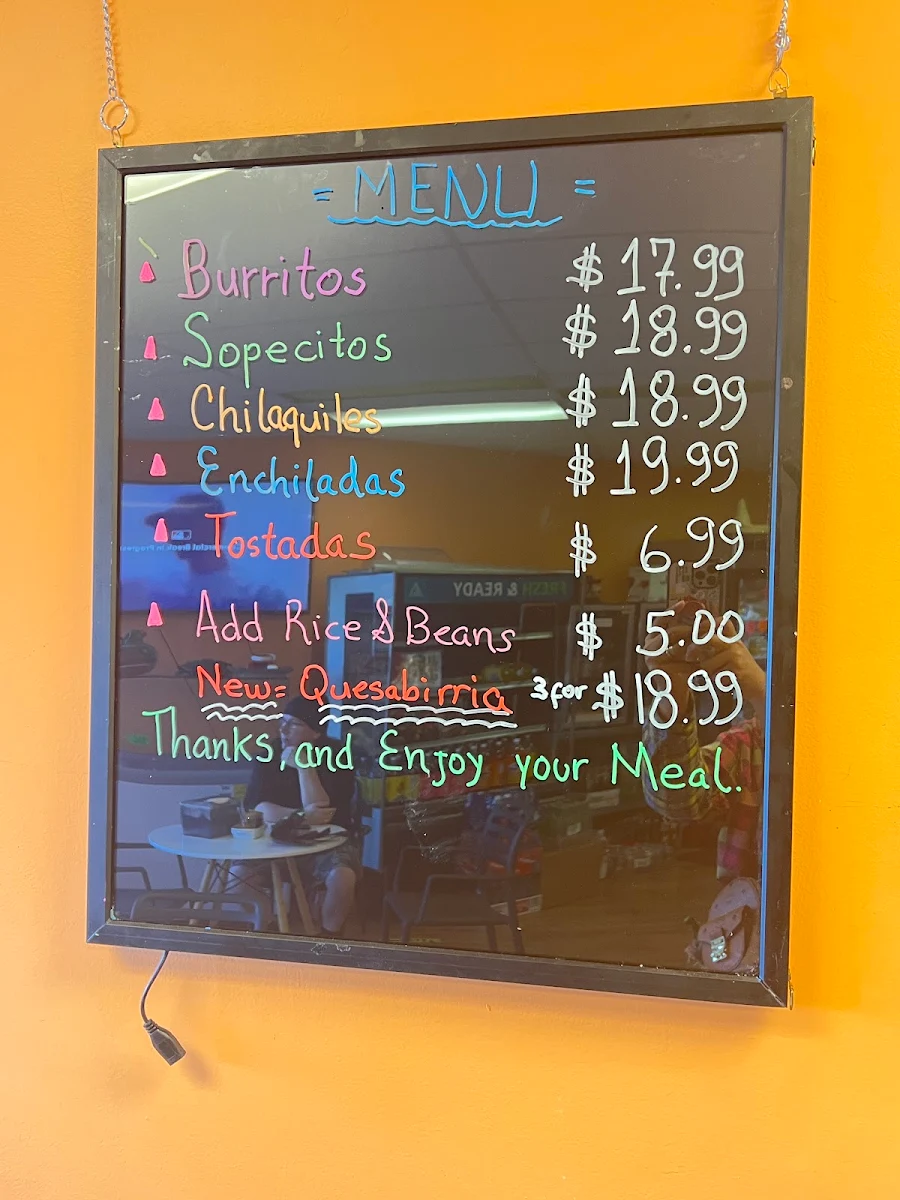 = MENU =
Burritos $ 17.99
Sopecitos $ 18.99
Chilaquiles $ 18.99
Enchiladas $ 19.99
Tostadas $ 6.99
Add Rice & Beans $ 5.00
New= Quesabirria 3 for $ 18.99
Thanks, and Enjoy your Meal.
FRESH & READY